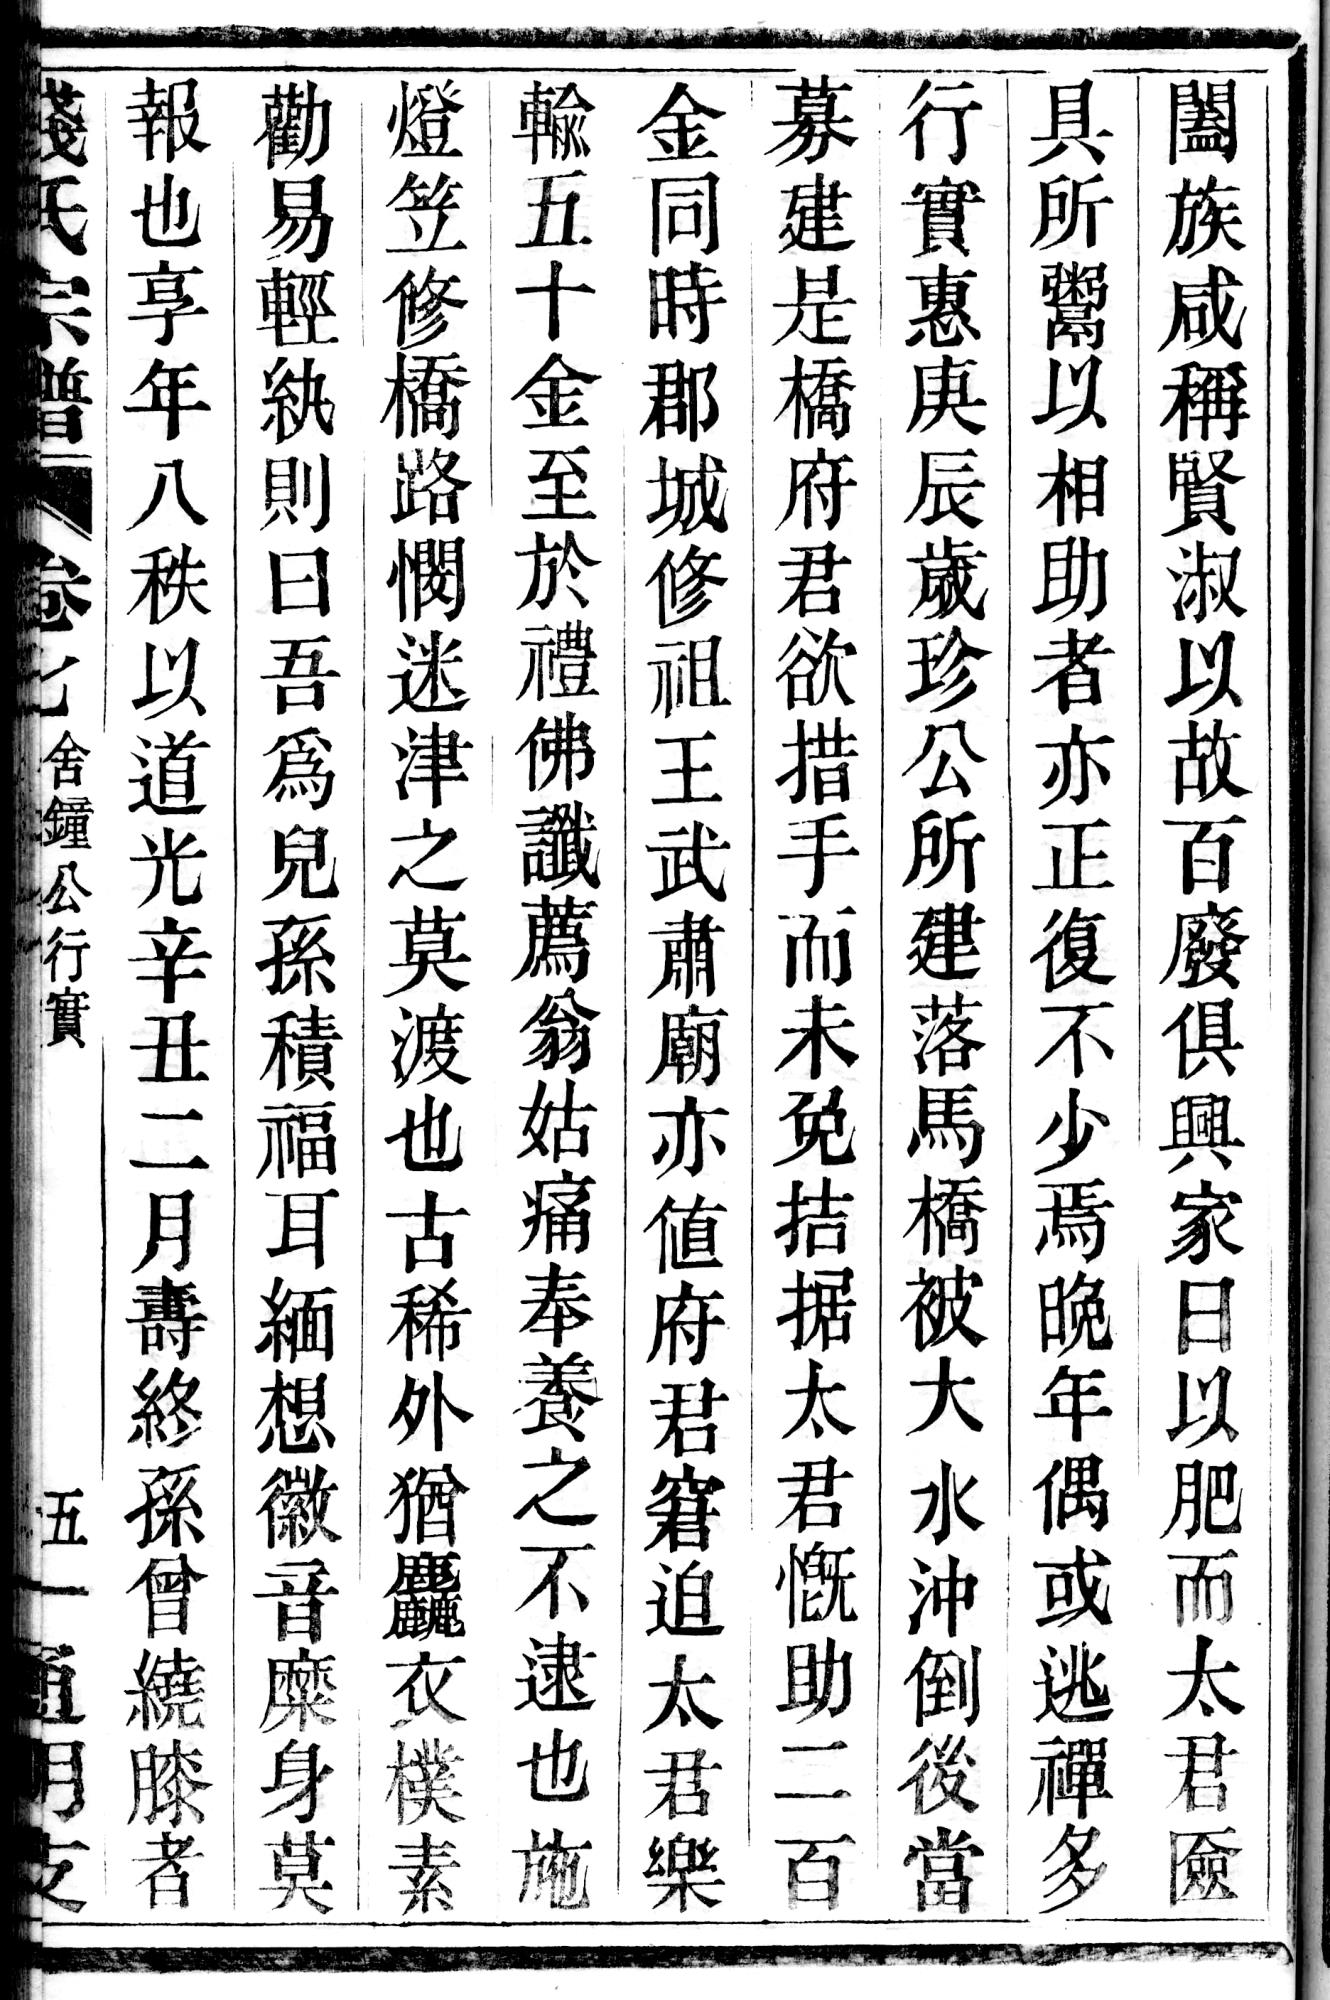 闔族咸稱賢淑以故百廢俱興家日以肥而太君匳
具所鬻以相助者亦正復不少焉晚年偶或逃禪多
行實惠庚辰歲珍公所建落馬橋被大水沖倒後當
募建是橋府君欲措手而未免拮据太君慨助二百
金同時郡城修祖王武肅廟亦値府君窘迫太君樂
輸五十金至於禮佛讖薦翁姑痛奉養之不逮也施
燈笠修橋路憫迷津之莫渡也古稀外猶麤衣樸素
勸易輕紈則曰吾爲兒孫積福耳緬想徽音糜身莫
報也享年八秩以道光辛丑二月壽終孫曾繞膝者
錢氏宗譜 卷七 舍鐘公行實 五一 通明支